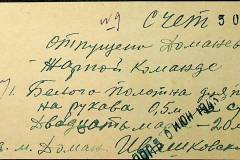 №9 СЧЕТ 30
отпущено Доманев
Жарной Команде
1. Белого полотна для п
на рукава 0,5м с
Двадцать мар - 20м
з.м. Доман.
6 ИЮН 194